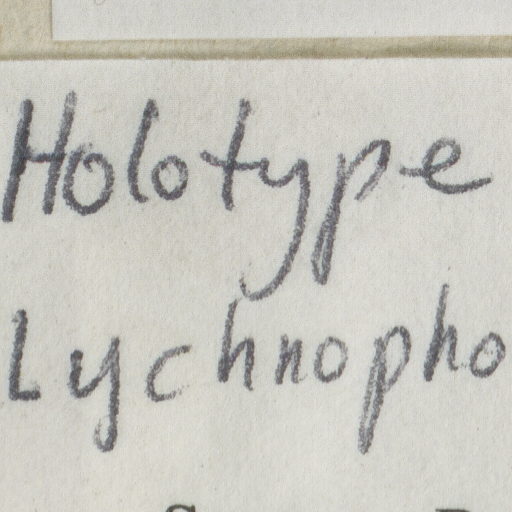 Holotype
Lychnopho